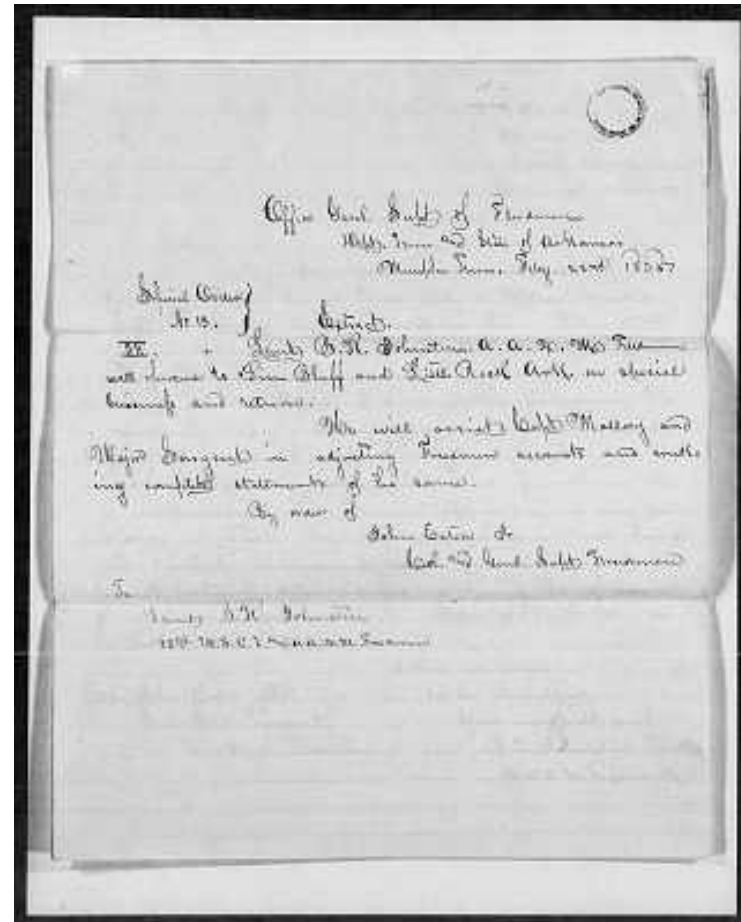 Office Genl Supt of Freedmen
Dept. Tenn and State of Arkansas
Memphis Tenn. Feby 22nd 1865
Special Orders
No 13. Extract.
II. Lieut. S. R. Johnston A. A. Q. M. Freedmen
will proceed to Pine Bluff and Little Rock Ark. on special
business and return.
He will assist Capt Mallory and
Major Sargent in adjusting Freedmen accounts and mak-
ing complete statements of the same.
By order of
John Eaton Jr
Col. and Genl Supt Freedmen
To
Lieut Johnston
U.S.C.I. A.A.Q.M. Freedmen